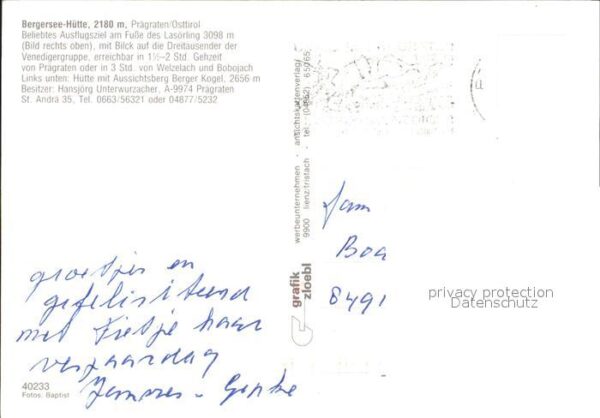 Bergersee-Hütte, 2180 m, Prägraten/Osttirol
Beliebtes Ausflugsziel am Fuße des Lasörling 3098 m
(Bild rechts oben), mit Blick auf die Dreitausender der
Venedigergruppe, erreichbar in 1½–2 Std. Gehzeit
von Prägraten oder in 3 Std. von Welzelach und Bobojach
Links unten: Hütte mit Aussichtsberg Berger Kogel, 2656 m
Besitzer: Hansjörg Unterwurzacher, A-9974 Prägraten
St. Andrä 35, Tel. 0663/56321 oder 04877/5232
werbeunternehmen - ansichtskartenverlag
9900 lienz/tristach - tel. (04852) 65065
grafik
zloebl
groetjes en
gefelisiteerd
met Fietje haar
verjaardag
Jannes - Geeske
Fam
Boa
8491
privacy protection
Datenschutz
40233
Fotos: Baptist